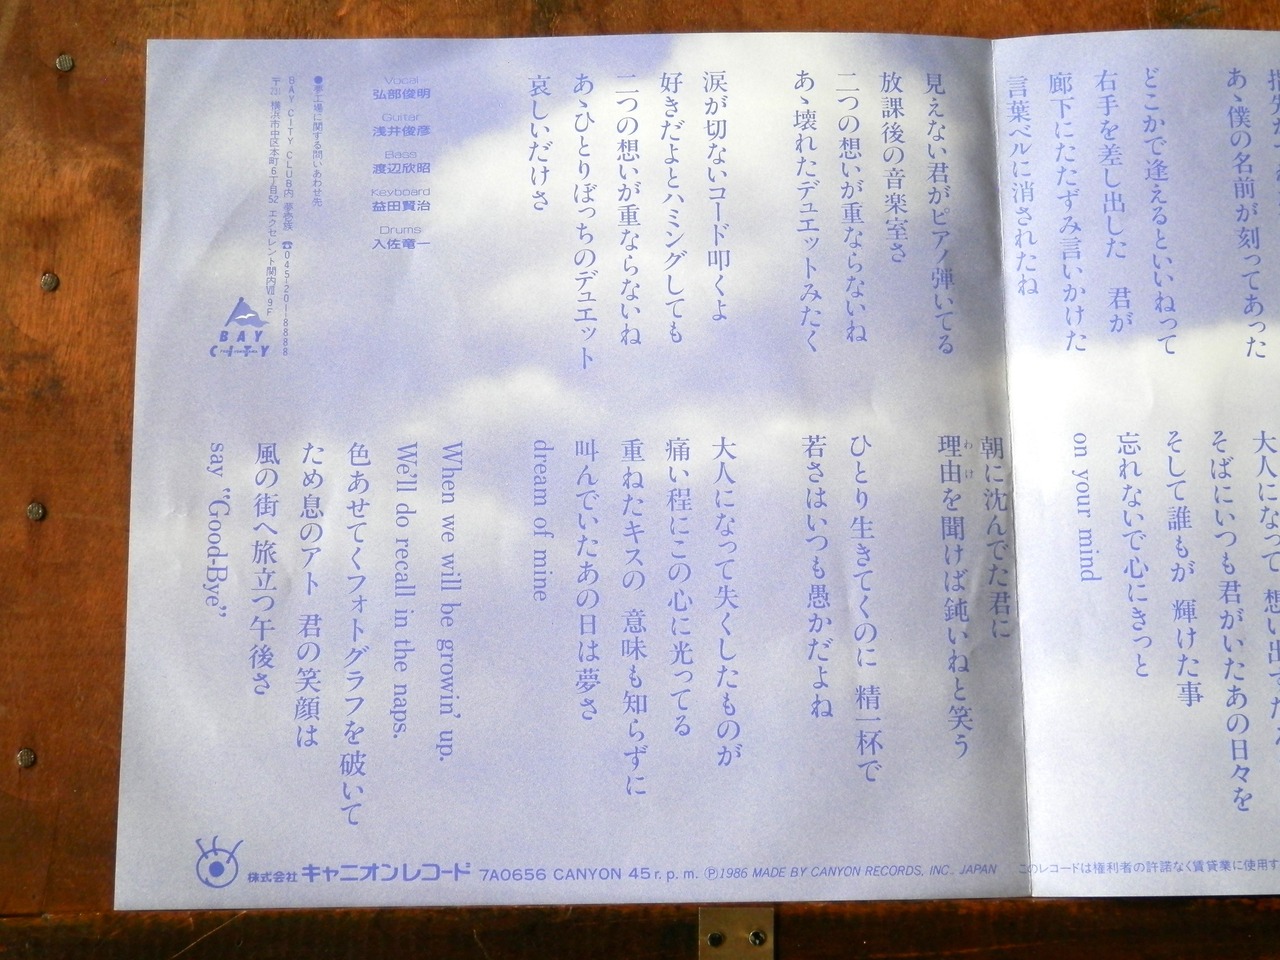 あゝ僕の名前が刻ってあった
どこかで逢えるといいねって
右手を差し出した 君が
廊下にたたずみ言いかけた
言葉ベルに消されたね
見えない君がピアノ弾いてる
放課後の音楽室さ
二つの想いが重ならないね
あゝ壊れたデュエットみたく
涙が切ないコード叩くよ
好きだよとハミングしても
二つの想いが重ならないね
あゝひとりぼっちのデュエット
哀しいだけさ
Vocal
弘部俊明
Guitar
浅井俊彦
Bass
渡辺欣昭
Keyboard
益田賢治
Drums
入佐竜一
●夢工場に関する問いあわせ先
BAY CITY CLUB内 夢壱族 ☎045-201-8888
〒231 横浜市中区本町6丁目52 エクセレント関内Ⅶ 9F
BAY
CITY
大人になって 想い出す
そばにいつも君がいたあの日々を
そして誰もが 輝けた事
忘れないで心にきっと
on your mind
朝に沈んでた君に
理由を聞けば鈍いねと笑う
わけ
ひとり生きてくのに 精一杯で
若さはいつも愚かだよね
大人になって失くしたものが
痛い程にこの心に光ってる
重ねたキスの 意味も知らずに
叫んでいたあの日は夢さ
dream of mine
When we will be growin' up.
We'll do recall in the naps.
色あせてくフォトグラフを破いて
ため息のアト 君の笑顔は
風の街へ旅立つ午後さ
say “Good-Bye”
株式会社 キャニオンレコード 7A0656 CANYON 45 r.p.m. Ⓟ1986 MADE BY CANYON RECORDS, INC. JAPAN このレコードは権利者の許諾なく賃貸業に使用す